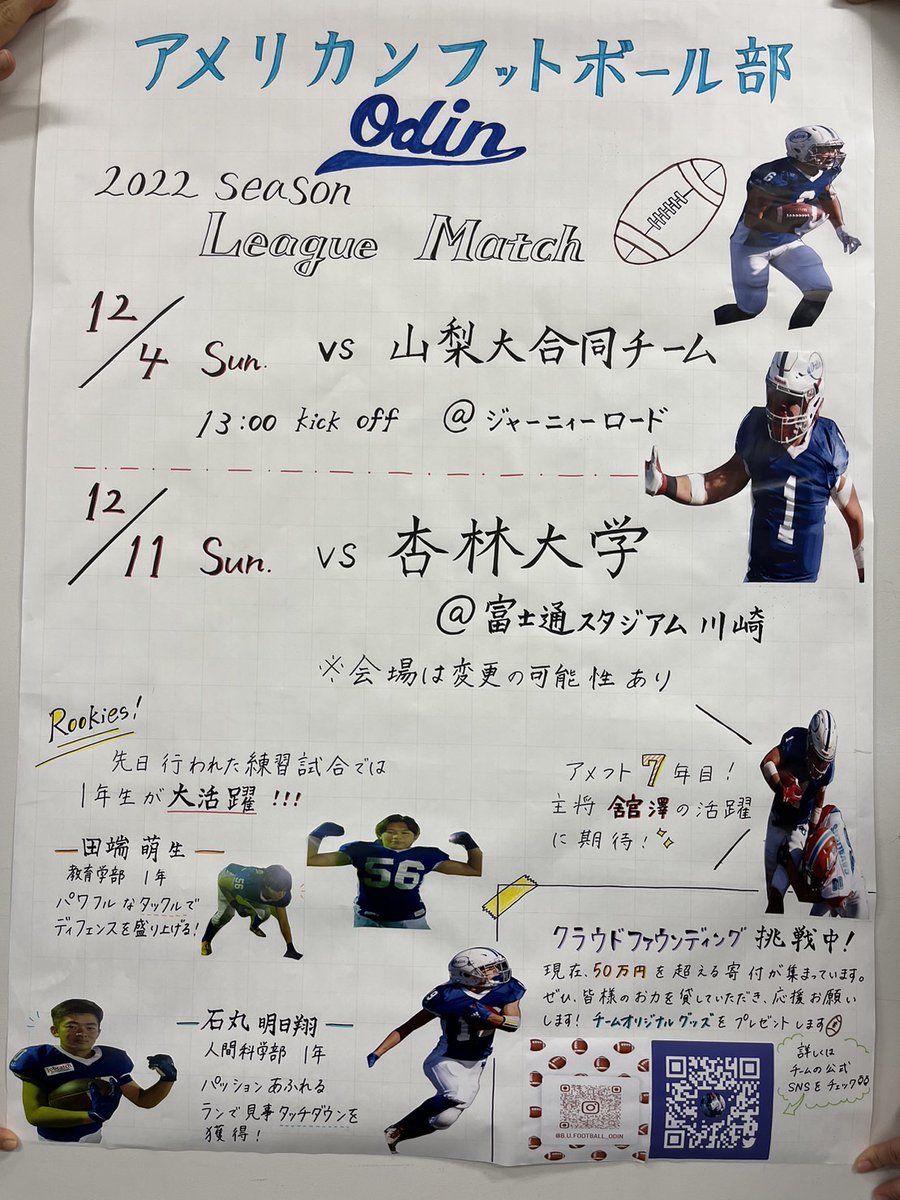 アメリカンフットボール部
Odin
2022 season
League Match
12/4 Sun. vs 山梨大合同チーム
13:00 kick off @ジャーニィーロード
12/11 Sun. vs 杏林大学
@富士通スタジアム川崎
※会場は変更の可能性あり
Rookies!
先日行われた練習試合では
1年生が大活躍!!!
田端 萌生
教育学部 1年
パワフルなタックルで
ディフェンスを盛り上げる!
56
56
石丸 明日翔
人間科学部 1年
パッションあふれる
ランで見事タッチダウンを
獲得!
アメフト7年目!
主将 舘澤の活躍
に期待!
クラウドファウンディング挑戦中!
現在、50万円を超える寄付が集まっています。
ぜひ、皆様のお力を貸していただき、応援お願い
します! チームオリジナルグッズをプレゼントします
詳しくは
チームの公式
SNSをチェック
@B.U.FOOTBALL_ODIN
6
1